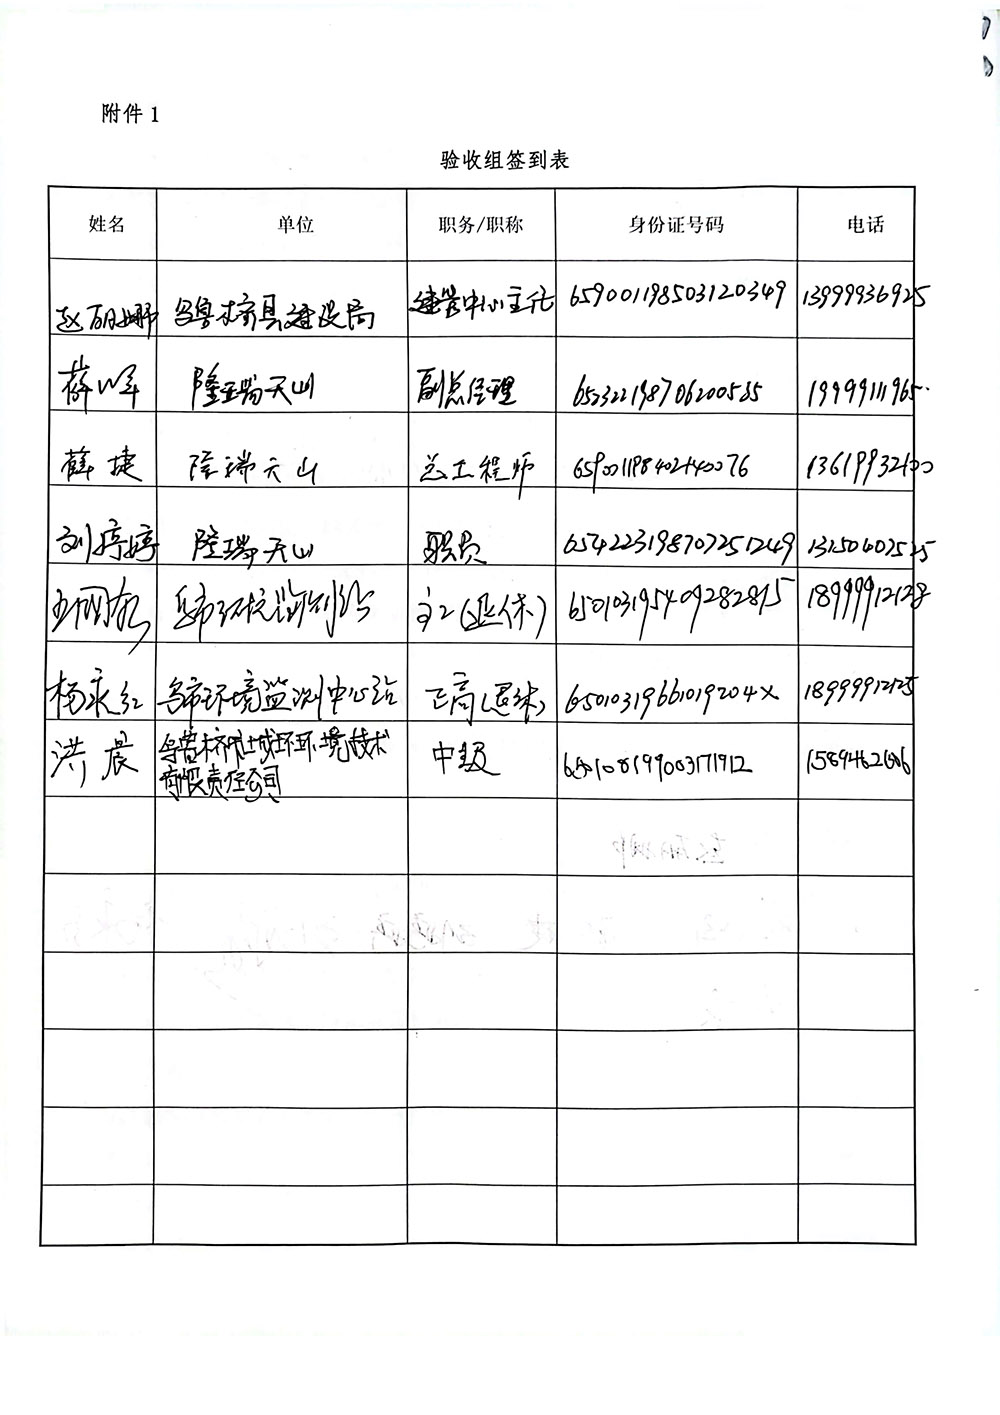 附件 1
验收组签到表
姓名 单位 职务/职称 身份证号码 电话
赵丽娜 乌鲁木齐县建设局 建管中心主任 659001198503120349 13999936925
蒋峰 隆瑞天山 副总经理 652322198706200535 19999111965
薛捷 隆瑞天山 总工程师 659001198402140076 13619932100
刘婷婷 隆瑞天山 职员 654223198707251249 13150402525
乌市环境监测站 (退休) 650103195409282815 18999912128
杨永红 乌市环境监测中心站 正高(退休) 65010319661019204X 18999912125
洪晨 乌鲁木齐市域环环境技术
有限责任公司 中级 650108199003171912 15894621606